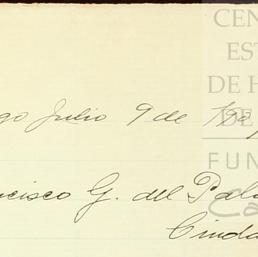 CEN
EST
DE H
DE
FUN
go Julio 9 de 19
ncisco G. del Pal
Ciuda